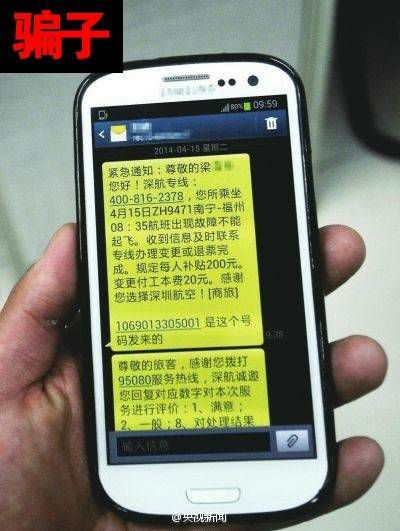 骗子
80% 09:59
2014-04-15 星期二
紧急通知：尊敬的梁
您好！深航专线：
400-816-2378，您所乘坐
4月15日ZH9471南宁-福州
08：35航班出现故障不能
起飞。收到信息及时联系
专线办理变更或退票完
成。规定每人补贴200元。
变更付工本费20元。感谢
您选择深圳航空！[商旅]
1069013305001 是这个号
码发来的
9:38
尊敬的旅客，感谢您拨打
95080服务热线，深航诚邀
您回复对应数字对本次服
务进行评价：1、满意；
2、一般；8、对处理结果
输入信息
@央视新闻